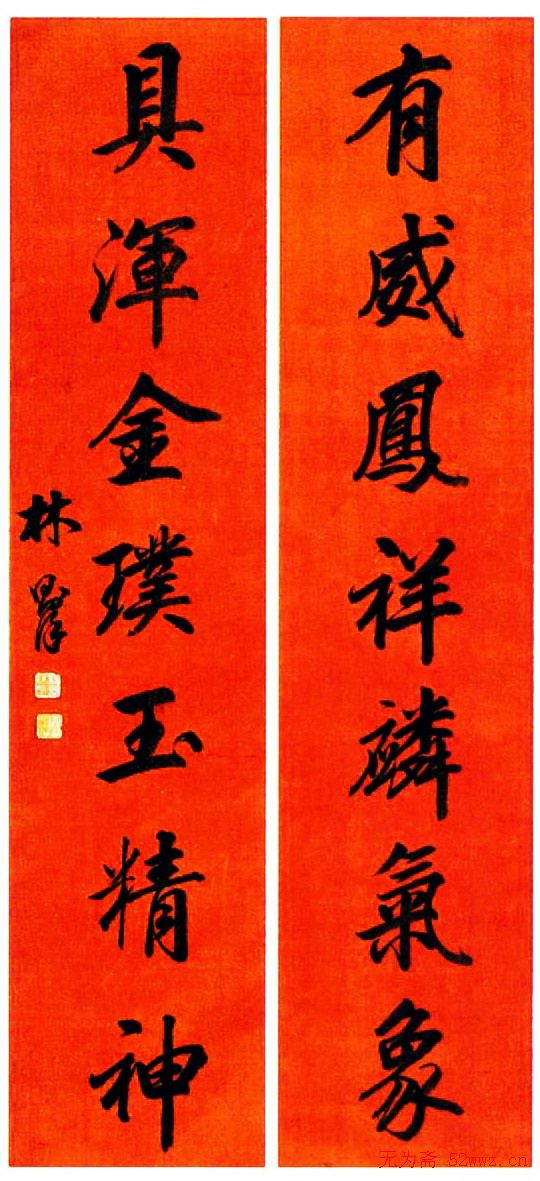 有威鳳祥麟氣象
具渾金璞玉精神
林
无为斋 52wwz.cn